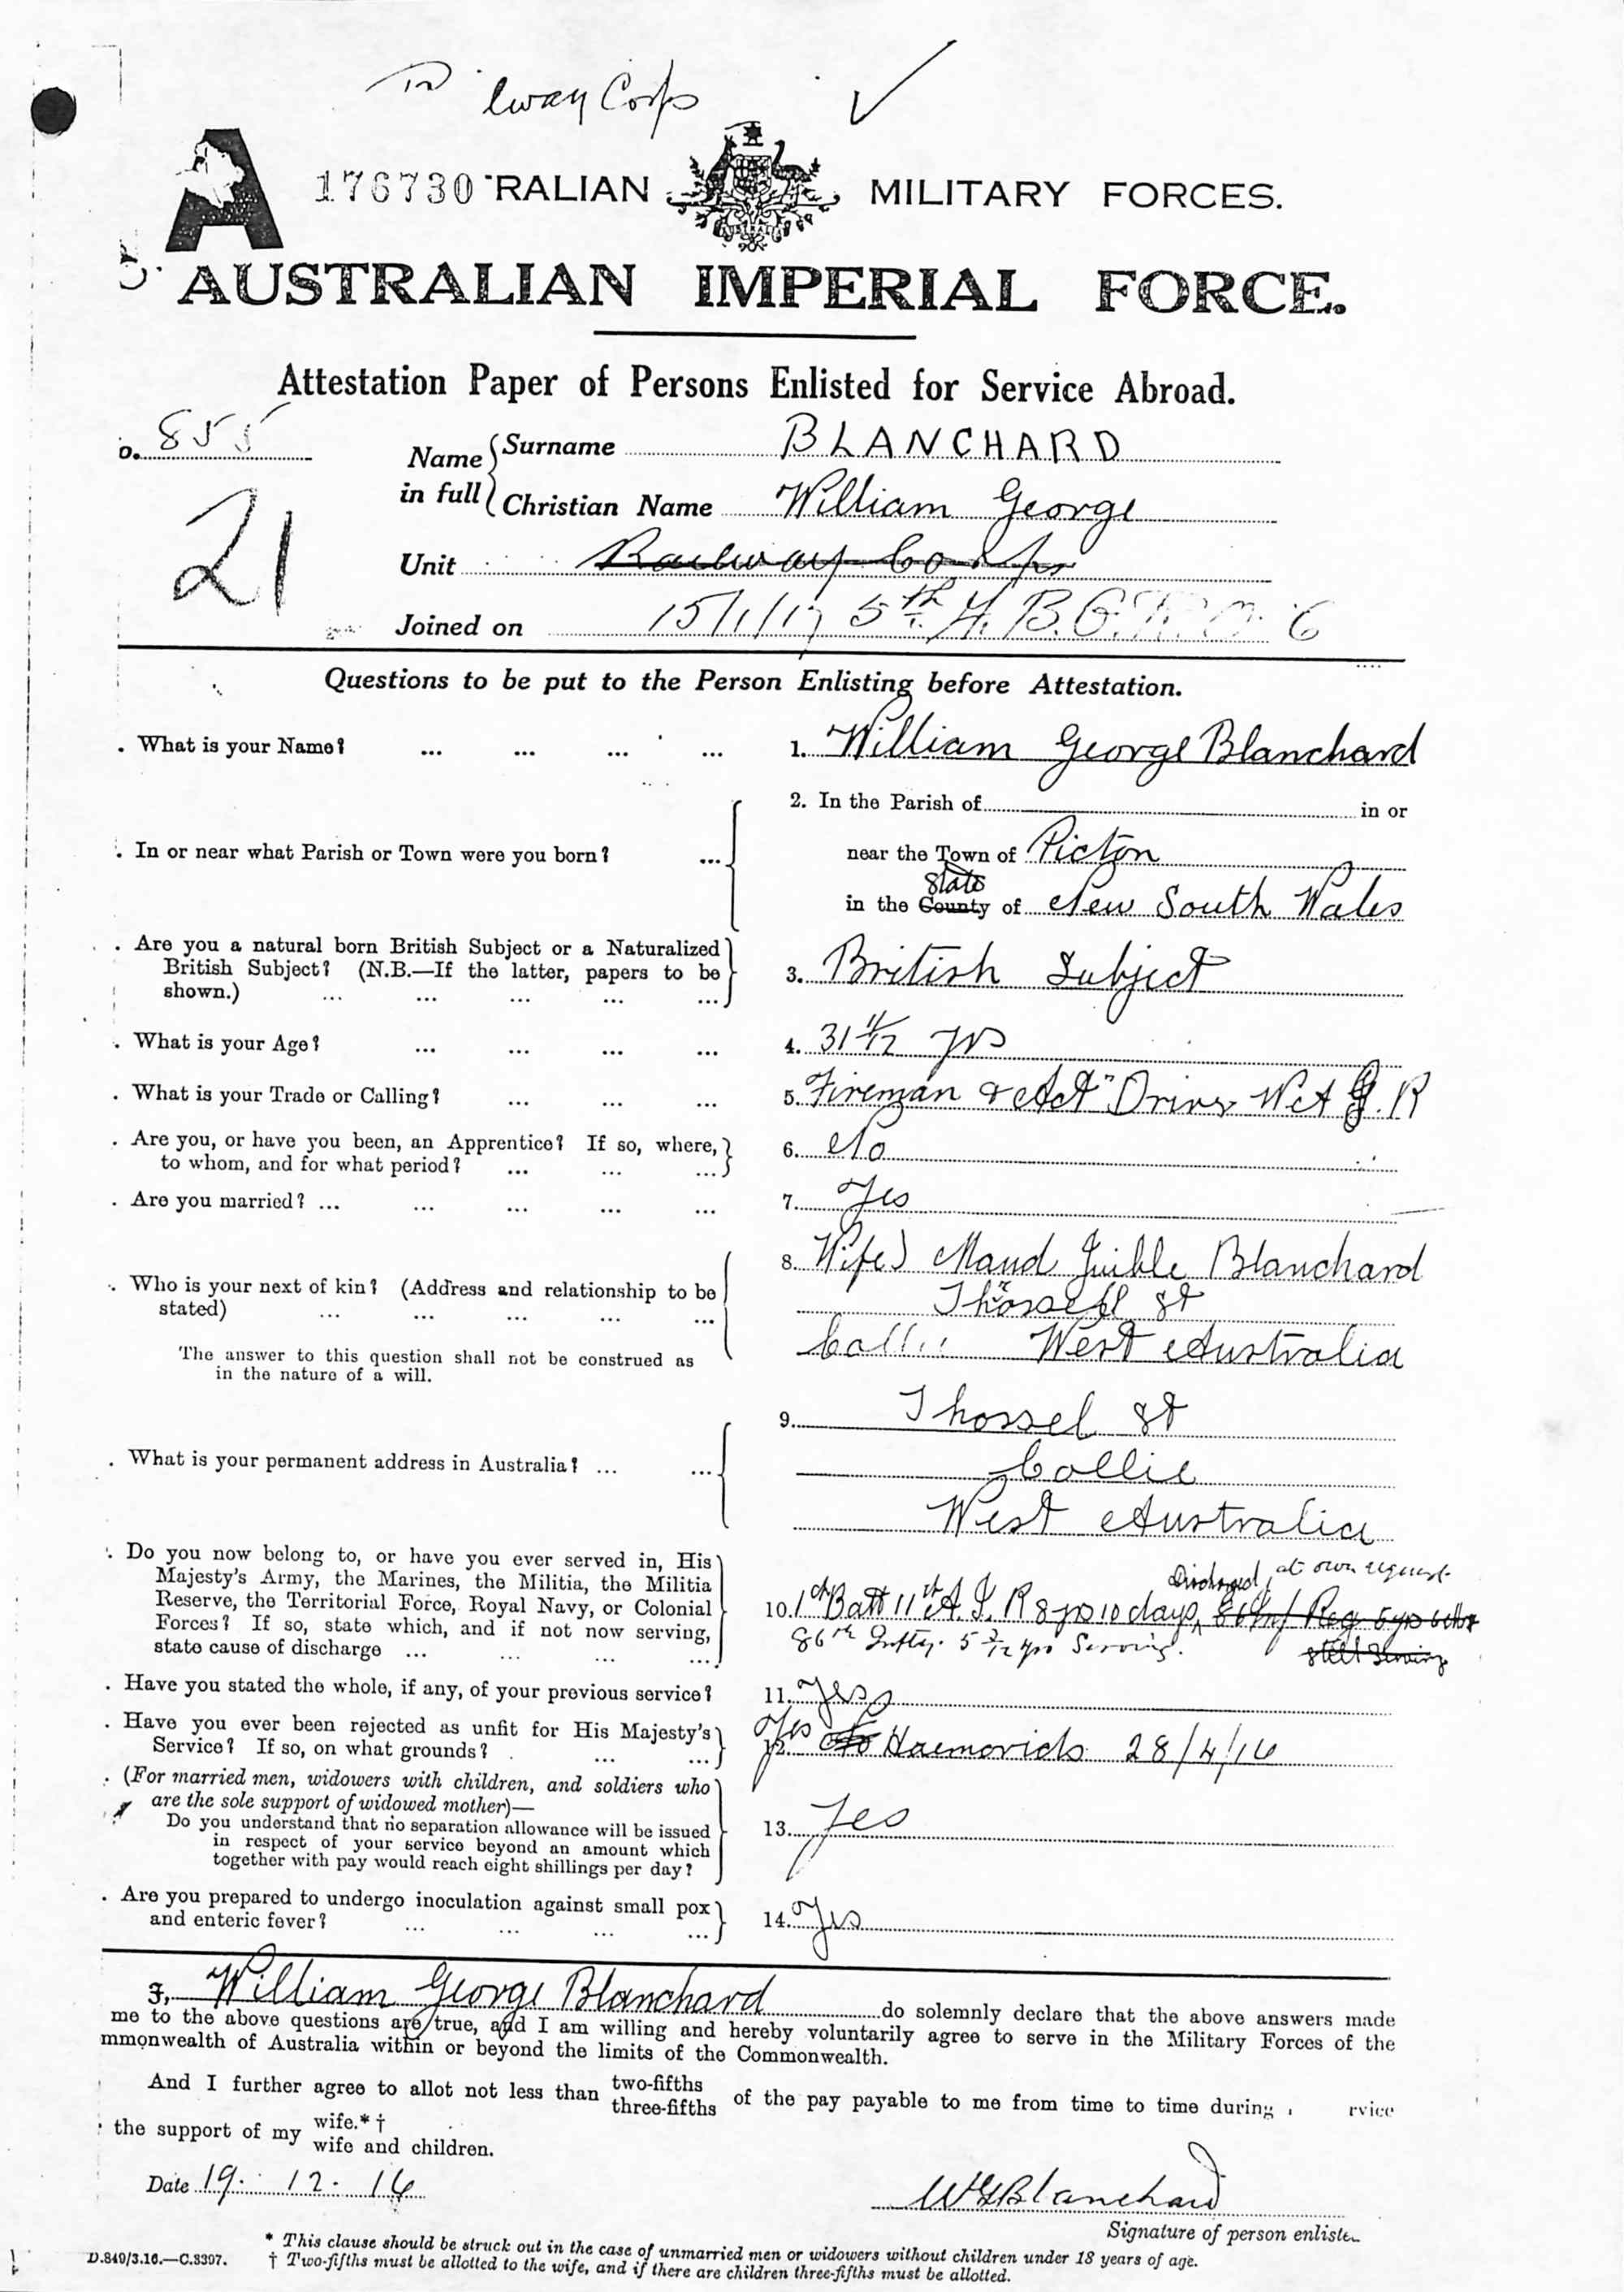 lway Corps
A 176730 RALIAN MILITARY FORCES.
AUSTRALIAN IMPERIAL FORCE.
Attestation Paper of Persons Enlisted for Service Abroad.
o. 855
Name in full { Surname BLANCHARD
Christian Name William George
21
Unit Railway Corps
Joined on 15/1/17 5th 6
Questions to be put to the Person Enlisting before Attestation.
. What is your Name? ... ... ... ... 1. William George Blanchard
. In or near what Parish or Town were you born? ... 2. In the Parish of in or
near the Town of Picton
State
in the County of New South Wales
. Are you a natural born British Subject or a Naturalized
British Subject? (N.B.—If the latter, papers to be
shown.) ... ... ... ... ... 3. British Subject
. What is your Age? ... ... ... ... 4. 31 11/12 yrs
. What is your Trade or Calling? ... ... ... 5. Fireman & Act" Driver W A G. R
. Are you, or have you been, an Apprentice? If so, where,
to whom, and for what period? ... ... ... 6. No
. Are you married? ... ... ... ... ... 7. Yes
. Who is your next of kin? (Address and relationship to be
stated) ... ... ... ... ...
The answer to this question shall not be construed as
in the nature of a will.
8. Wife) Maud Blanchard
Thossell St
Collie West Australia
. What is your permanent address in Australia? ... ... 9. Thossel St
Collie
West Australia
. Do you now belong to, or have you ever served in, His
Majesty's Army, the Marines, the Militia, the Militia
Reserve, the Territorial Force, Royal Navy, or Colonial
Forces? If so, state which, and if not now serving,
state cause of discharge ... ... ... ...
Discharged at own request
10. 1st Batt 11th A. I. R 8 yrs 10 days, 86 Inf Reg 5 yrs
86th Inftry. 5 7/12 yrs Serving. still Serving
. Have you stated the whole, if any, of your previous service? 11. Yes
. Have you ever been rejected as unfit for His Majesty's
Service? If so, on what grounds? . ... ... 12. Yes No Haemorids 28/4/16
. (For married men, widowers with children, and soldiers who
are the sole support of widowed mother)—
Do you understand that no separation allowance will be issued
in respect of your service beyond an amount which
together with pay would reach eight shillings per day?
13. Yes
. Are you prepared to undergo inoculation against small pox
and enteric fever? ... ... ... ... 14. Yes
I, William George Blanchard do solemnly declare that the above answers made
me to the above questions are true, and I am willing and hereby voluntarily agree to serve in the Military Forces of the
mmonwealth of Australia within or beyond the limits of the Commonwealth.
And I further agree to allot not less than two-fifths three-fifths of the pay payable to me from time to time during rvice
the support of my wife.* † wife and children.
Date 19. 12. 16
WGBlanchard
Signature of person enliste
* This clause should be struck out in the case of unmarried men or widowers without children under 18 years of age.
D.849/3.16.—C.8397. † Two-fifths must be allotted to the wife, and if there are children three-fifths must be allotted.